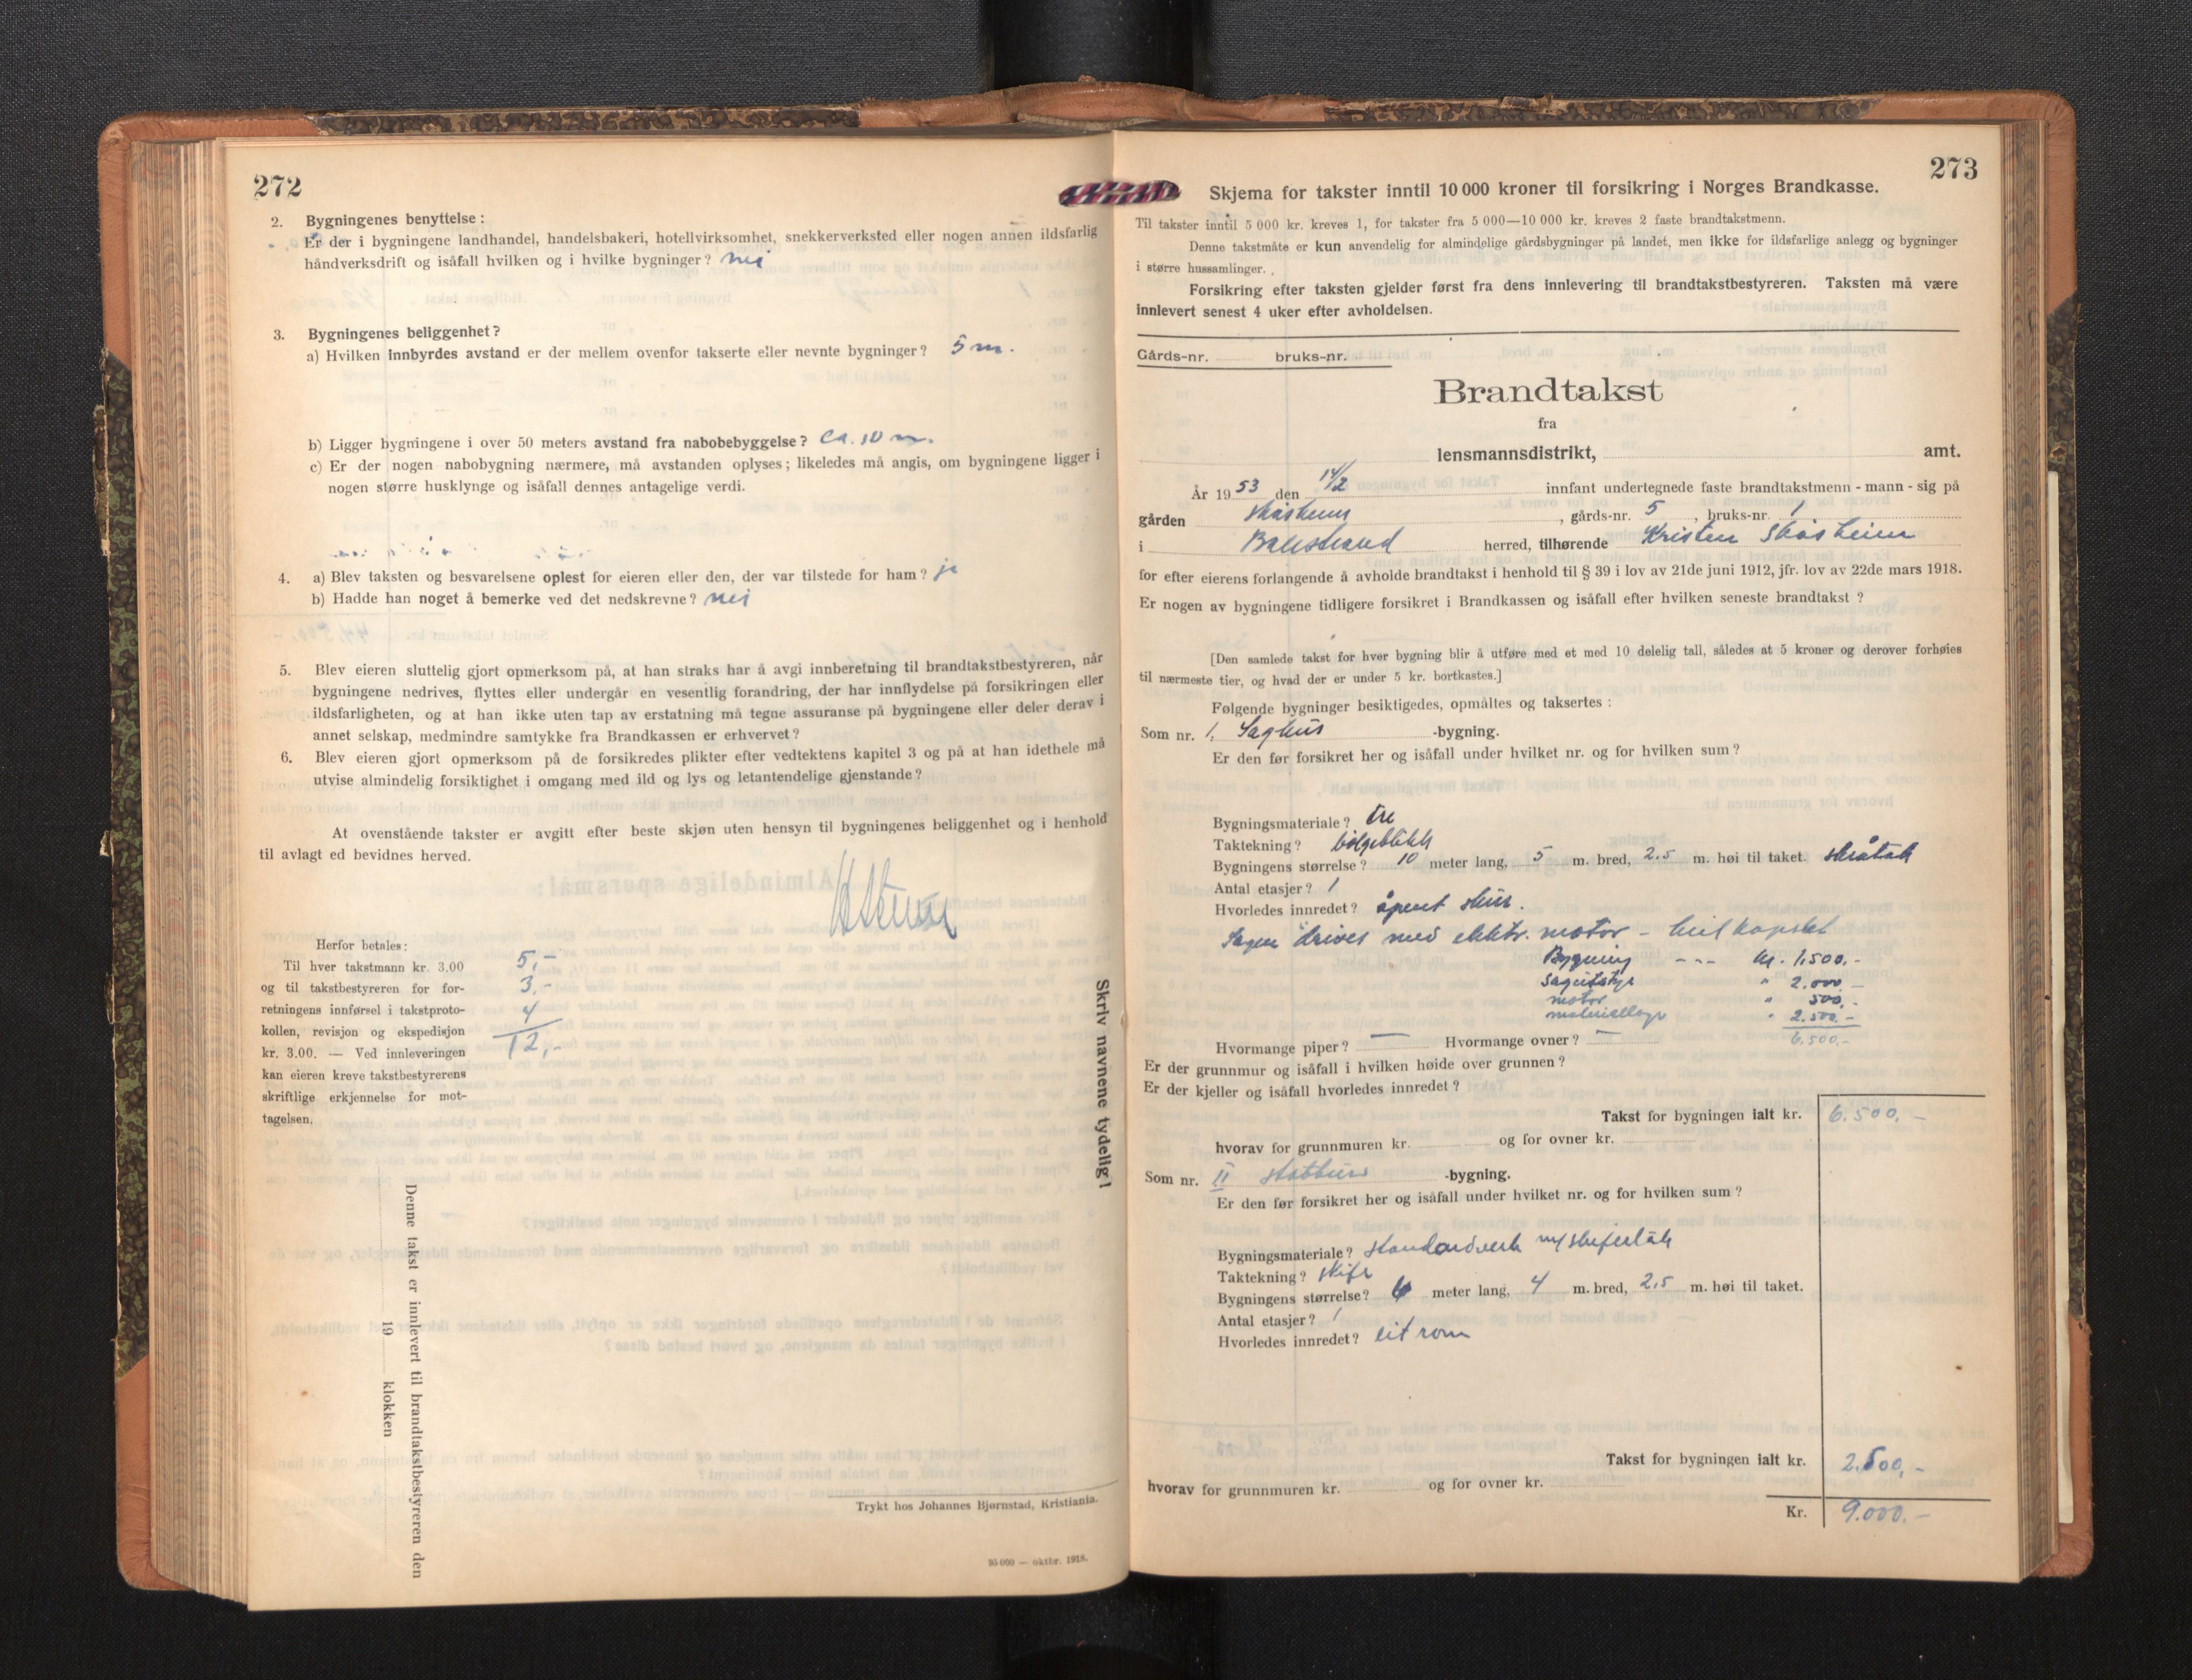 272
2. Bygningenes benyttelse :
Er der i bygningene landhandel, handelsbakeri, hotellvirksomhet, snekkerverksted eller nogen annen ildsfarlig
håndverksdrift og isåfall hvilken og i hvilke bygninger? nei
3. Bygningenes beliggenhet?
a) Hvilken innbyrdes avstand er der mellem ovenfor takserte eller nevnte bygninger? 5 m.
b) Ligger bygningene i over 50 meters avstand fra nabobebyggelse? ca. 10 m.
c) Er der nogen nabobygning nærmere, må avstanden oplyses; likeledes må angis, om bygningene ligger i
nogen større husklynge og isåfall dennes antagelige verdi.
4. a) Blev taksten og besvarelsene oplest for eieren eller den, der var tilstede for ham? ja
b) Hadde han noget å bemerke ved det nedskrevne? nei
5. Blev eieren sluttelig gjort opmerksom på, at han straks har å avgi innberetning til brandtakstbestyreren, når
bygningene nedrives, flyttes eller undergår en vesentlig forandring, der har innflydelse på forsikringen eller
ildsfarligheten, og at han ikke uten tap av erstatning må tegne assuranse på bygningene eller deler derav i
annet selskap, medmindre samtykke fra Brandkassen er erhvervet?
6. Blev eieren gjort opmerksom på de forsikredes plikter efter vedtektens kapitel 3 og på at han idethele må
utvise almindelig forsiktighet i omgang med ild og lys og letantendelige gjenstande?
At ovenstående takster er avgitt efter beste skjøn uten hensyn til bygningenes beliggenhet og i henhold
til avlagt ed bevidnes herved.
Herfor betales:
Til hver takstmann kr. 3.00 5,-
og til takstbestyreren for for- 3,-
retningens innførsel i takstproto- 4
kollen, revisjon og ekspedisjon 12,-
kr. 3.00. — Ved innleveringen
kan eieren kreve takstbestyrerens
skriftlige erkjennelse for mot-
tagelsen.
Denne takst er innlevert til brandtakstbestyreren den
19 klokken
Skriv navnene tydelig!
Trykt hos Johannes Bjørnstad, Kristiania.
95 000 — oktbr. 1918.
273
Skjema for takster inntil 10 000 kroner til forsikring i Norges Brandkasse.
Til takster inntil 5 000 kr. kreves 1, for takster fra 5 000—10 000 kr. kreves 2 faste brandtakstmenn.
Denne takstmåte er kun anvendelig for almindelige gårdsbygninger på landet, men ikke for ildsfarlige anlegg og bygninger
i større hussamlinger.
Forsikring efter taksten gjelder først fra dens innlevering til brandtakstbestyreren. Taksten må være
innlevert senest 4 uker efter avholdelsen.
Gårds-nr. bruks-nr.
Brandtakst
fra
lensmannsdistrikt, amt.
År 1953 den 14/2 innfant undertegnede faste brandtakstmenn - mann - sig på
gården Skåsheim, gårds-nr. 5, bruks-nr. 1
i Balestrand herred, tilhørende Kristen Skåsheim
for efter eierens forlangende å avholde brandtakst i henhold til § 39 i lov av 21de juni 1912, jfr. lov av 22de mars 1918.
Er nogen av bygningene tidligere forsikret i Brandkassen og isåfall efter hvilken seneste brandtakst ?
[Den samlede takst for hver bygning blir å utføre med et med 10 delelig tall, således at 5 kroner og derover forhøies
til nærmeste tier, og hvad der er under 5 kr. bortkastes.]
Følgende bygninger besiktigedes, opmåltes og taksertes :
Som nr. 1. Saghus -bygning.
Er den før forsikret her og isåfall under hvilket nr. og for hvilken sum ?
Bygningsmateriale? tre
Taktekning? bølgeblikk
Bygningens størrelse? 10 meter lang, 5 m. bred, 2.5 m. høi til taket. skråtak
Antal etasjer? 1
Hvorledes innredet? åpent skur.
Sagen drives med elektr. motor - heilkapslet
Bygning --- kr. 1.500.-
Sagutstyr " 2.000.-
motor " 500.-
materiallager " 2.500.-
6.500.-
Hvormange piper? — Hvormange ovner? —
Er der grunnmur og isåfall i hvilken høide over grunnen ?
Er der kjeller og isåfall hvorledes innredet ?
Takst for bygningen ialt kr. 6.500,-
hvorav for grunnmuren kr. og for ovner kr.
Som nr. II stabburs -bygning.
Er den før forsikret her og isåfall under hvilket nr. og for hvilken sum ?
Bygningsmateriale? standardverk m/skifertak
Taktekning? skifer
Bygningens størrelse? 6 meter lang, 4 m. bred, 2.5 m. høi til taket.
Antal etasjer? 1
Hvorledes innredet? eit rom
Takst for bygningen ialt kr. 2.500,-
hvorav for grunnmuren kr. og for ovner kr.
Kr. 9.000.-